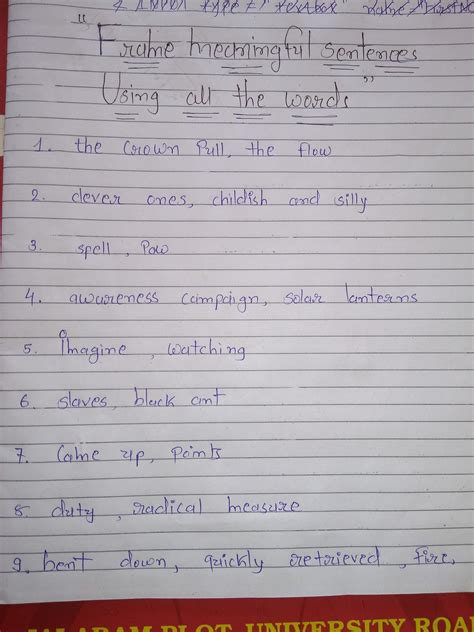 "Frame meaningful sentences
Using all the words"
1. the Crown Pull, the flow
2. clever ones, childish and silly
3. spell, Paw
4. awareness campaign, solar lanterns
5. Imagine, watching
6. slaves, black ant
7. Came up, points
8. duty, radical measure
9. bent down, quickly retrieved, fire,
PLOT, UNIVERSITY ROA